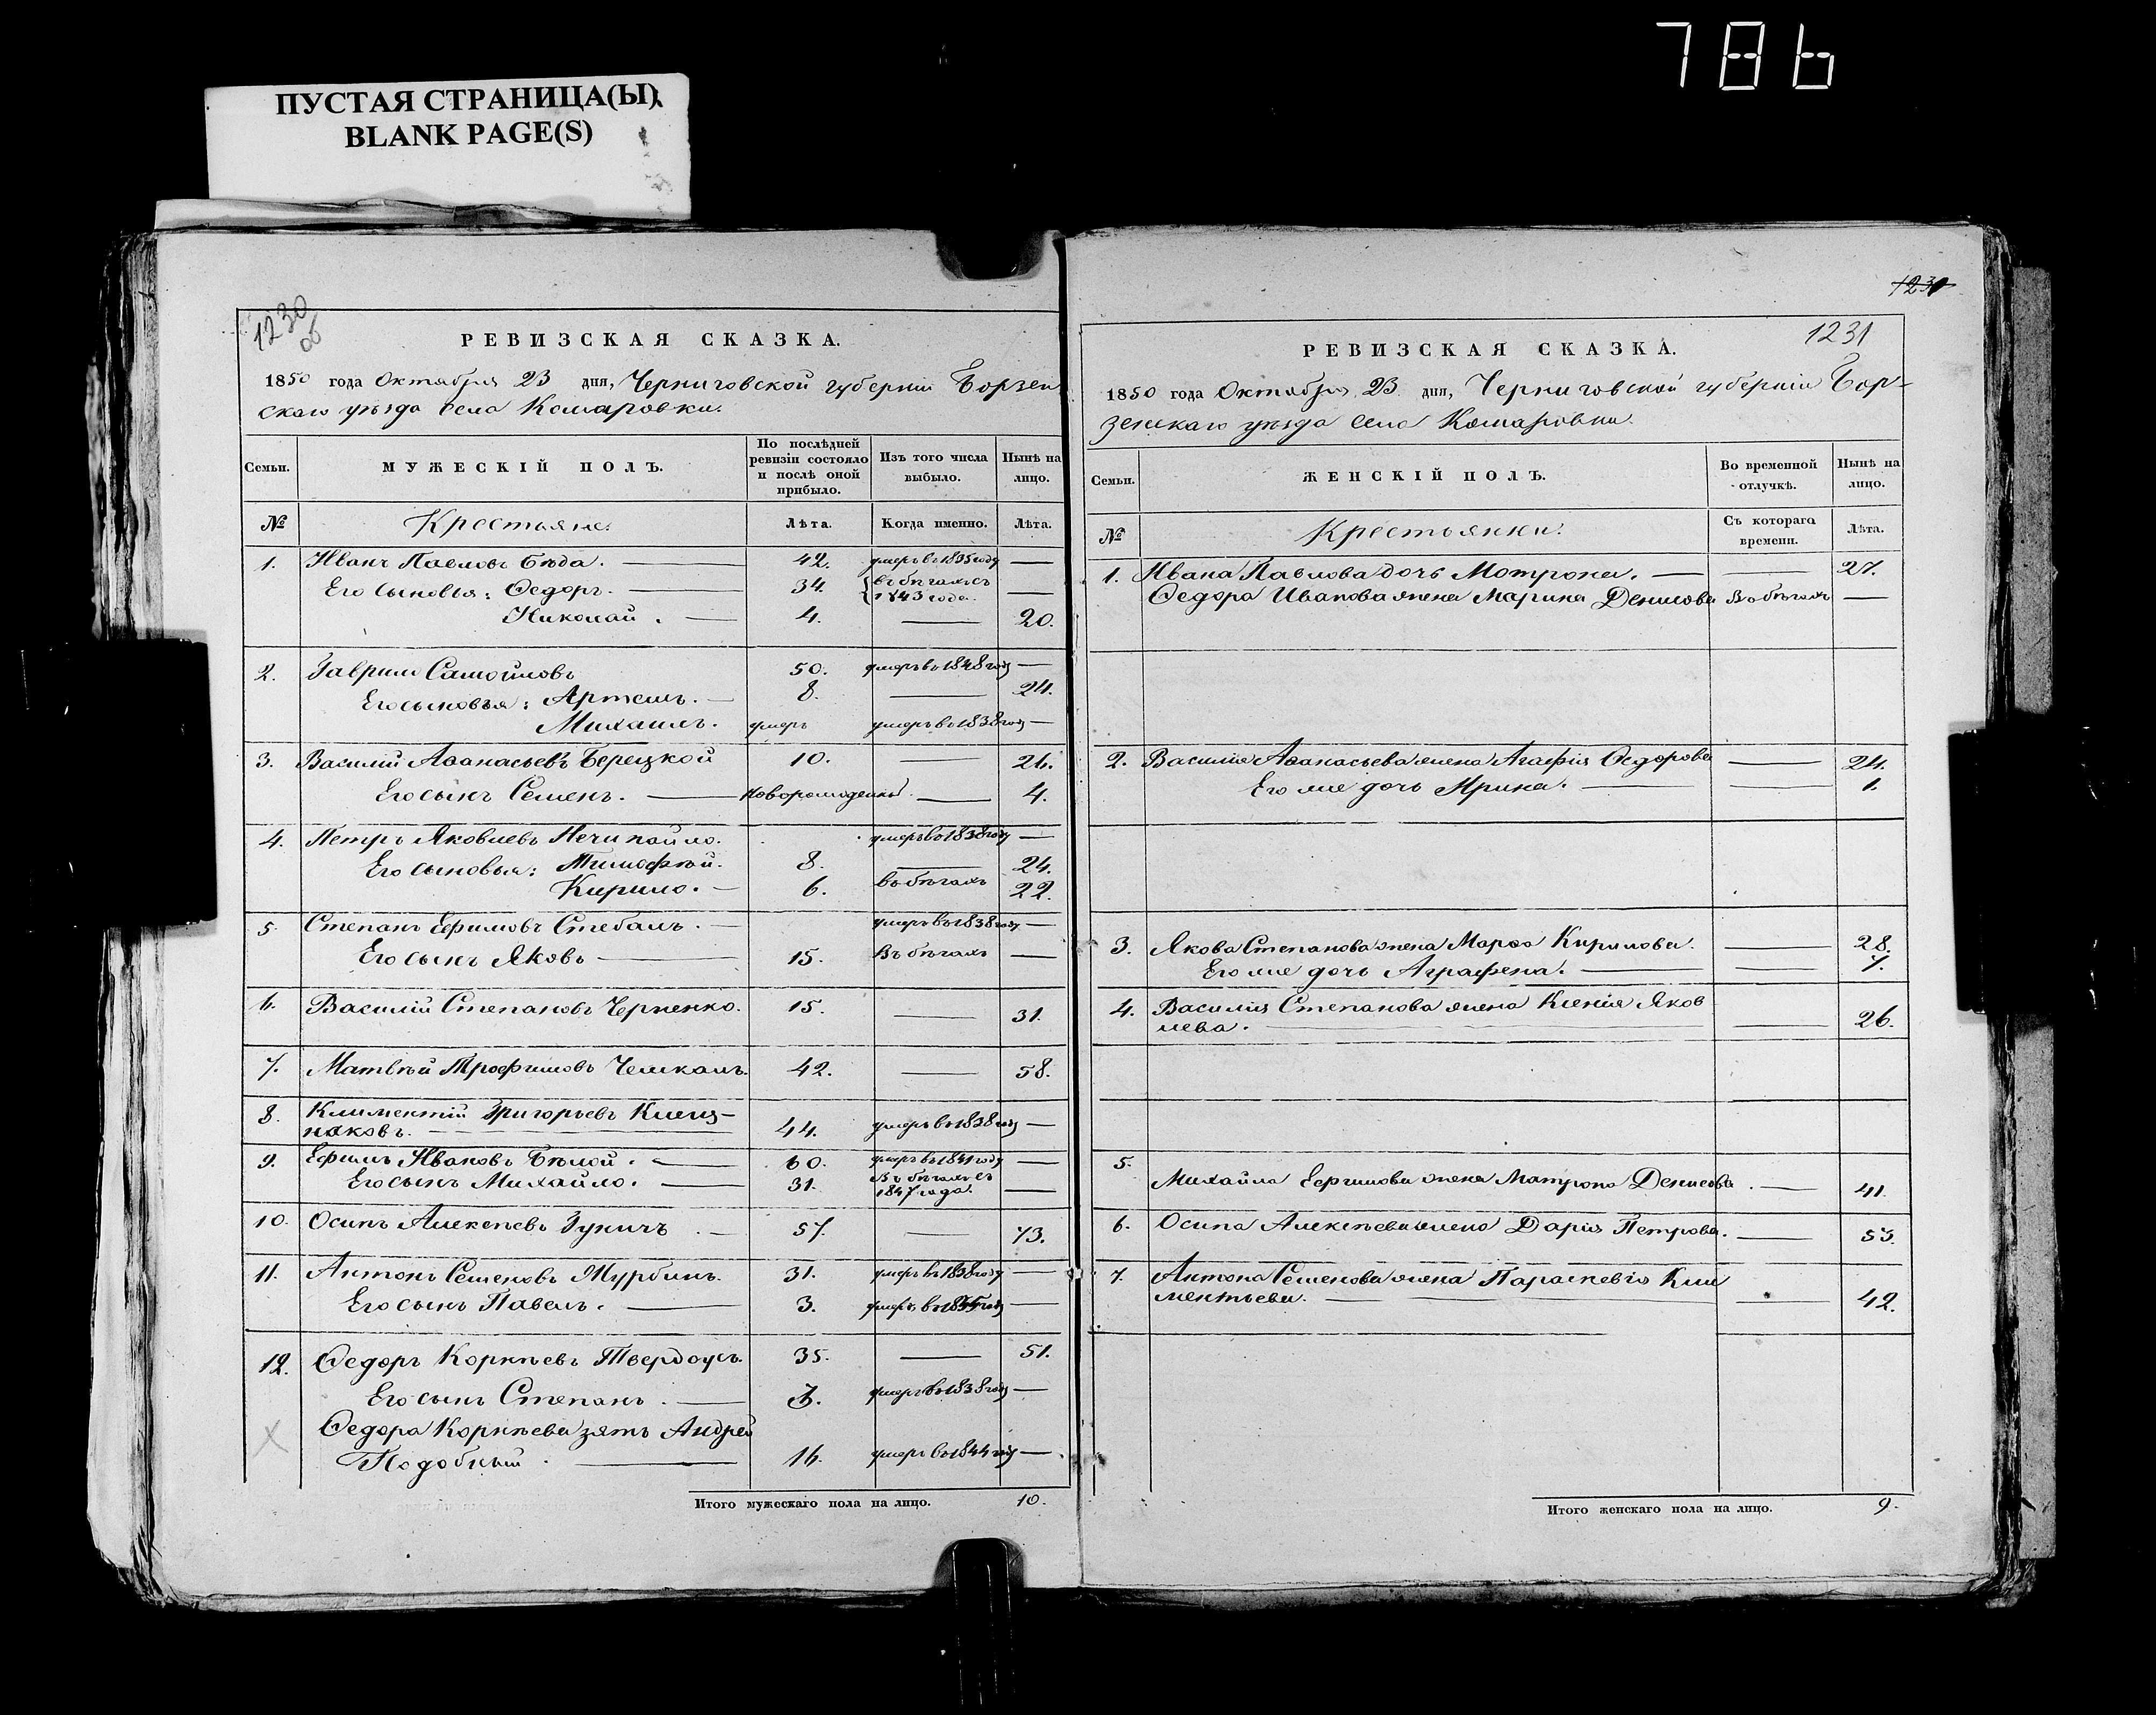 786
ПУСТАЯ СТРАНИЦА(Ы)
BLANK PAGE(S)
1230
об
РЕВИЗСКАЯ СКАЗКА.
1850 года Октября 23 дня, Черниговской губерніи Борзен
скаго уѣзда села Комаровки.
Семьи. МУЖЕСКІЙ ПОЛЪ. По послѣдней ревизіи состояло и послѣ оной прибыло. Изъ того числа выбыло. Нынѣ на лицо.
№ Крестьяне: Лѣта. Когда именно. Лѣта.
1. Иванъ Павловъ Бѣда. — 42. умеръ въ 1835 году —
Его сыновья: Ѳедоръ. — 34. въ бѣгахъ съ 1843 года. —
Николай. — 4. — 20.
2. Гаврило Самойловъ 50. умеръ въ 1848 году —
Его сыновья: Артемъ. — 8. — 24.
Михаилъ. умеръ умеръ въ 1838 году —
3. Василій Аѳанасьевъ Берецкой 10. — 26.
Его сынъ Семенъ. — новорожденный. — 4.
4. Петръ Яковлевъ Нечипайло. умеръ въ 1838 году —
Его сыновья: Тимофѣй. 8. — 24.
Кирило. — 6. въ бѣгахъ 22.
5. Степанъ Ефимовъ Стебаль. — умеръ въ 1838 году —
Его сынъ Яковъ — 15. Въ бѣгахъ —
6. Василій Степановъ Черненко. 15. — 31.
7. Матвѣй Трофимовъ Чемкалъ. 42. — 58.
8. Климентій Григорьевъ
44. умеръ въ 1838 году —
9. Ефимъ Ивановъ Бѣлой. — 60. умеръ въ 1841 году —
Его сынъ Михайло. — 31. Въ бѣгахъ съ 1847 года. —
10. Осипъ Алексѣевъ 57. — 73.
11. Антонъ Семеновъ Мурбинъ. 31. умеръ въ 1838 году —
Его сынъ Павелъ. — 3. умеръ въ году —
12. Ѳедоръ Корнѣевъ Твердоусъ. 35. — 51.
Его сынъ Степанъ. — умеръ въ 1838 году —
Ѳедора Корнѣева зять Андрей
Подобный. — 16. умеръ въ 1844 году —
Итого мужескаго пола на лицо. 10.
1231
1231
РЕВИЗСКАЯ СКАЗКА.
1850 года Октября 23 дня, Черниговской губерніи Бор-
зенскаго уѣзда села Комаровки.
Семьи. ЖЕНСКІЙ ПОЛЪ. Во временной отлучкѣ. Нынѣ на лицо.
№ Крестьянки: Съ котораго времени. Лѣта.
1. Ивана Павлова дочь Мотрона. — — 27.
Ѳедора Иванова жена Марина Денисова Въ бѣгахъ —
2. Василія Аѳанасьева жена Агафія Ѳедорова — 24.
Его же дочь Ирина. — — 1.
3. Якова Степанова жена Марѳа Кирилова. — 28.
Его же дочь Аграфена. — — 7.
4. Василія Степанова жена Ксенія Яков
лева. — — 26.
5. Михайла Ефимова жена Матрона Денисова. — 41.
6. Осипа Алексѣева жена Дарія Петрова. — 53.
7. Антона Семенова жена Параскевія Кли
ментьева. — — 42.
Итого женскаго пола на лицо. 9.